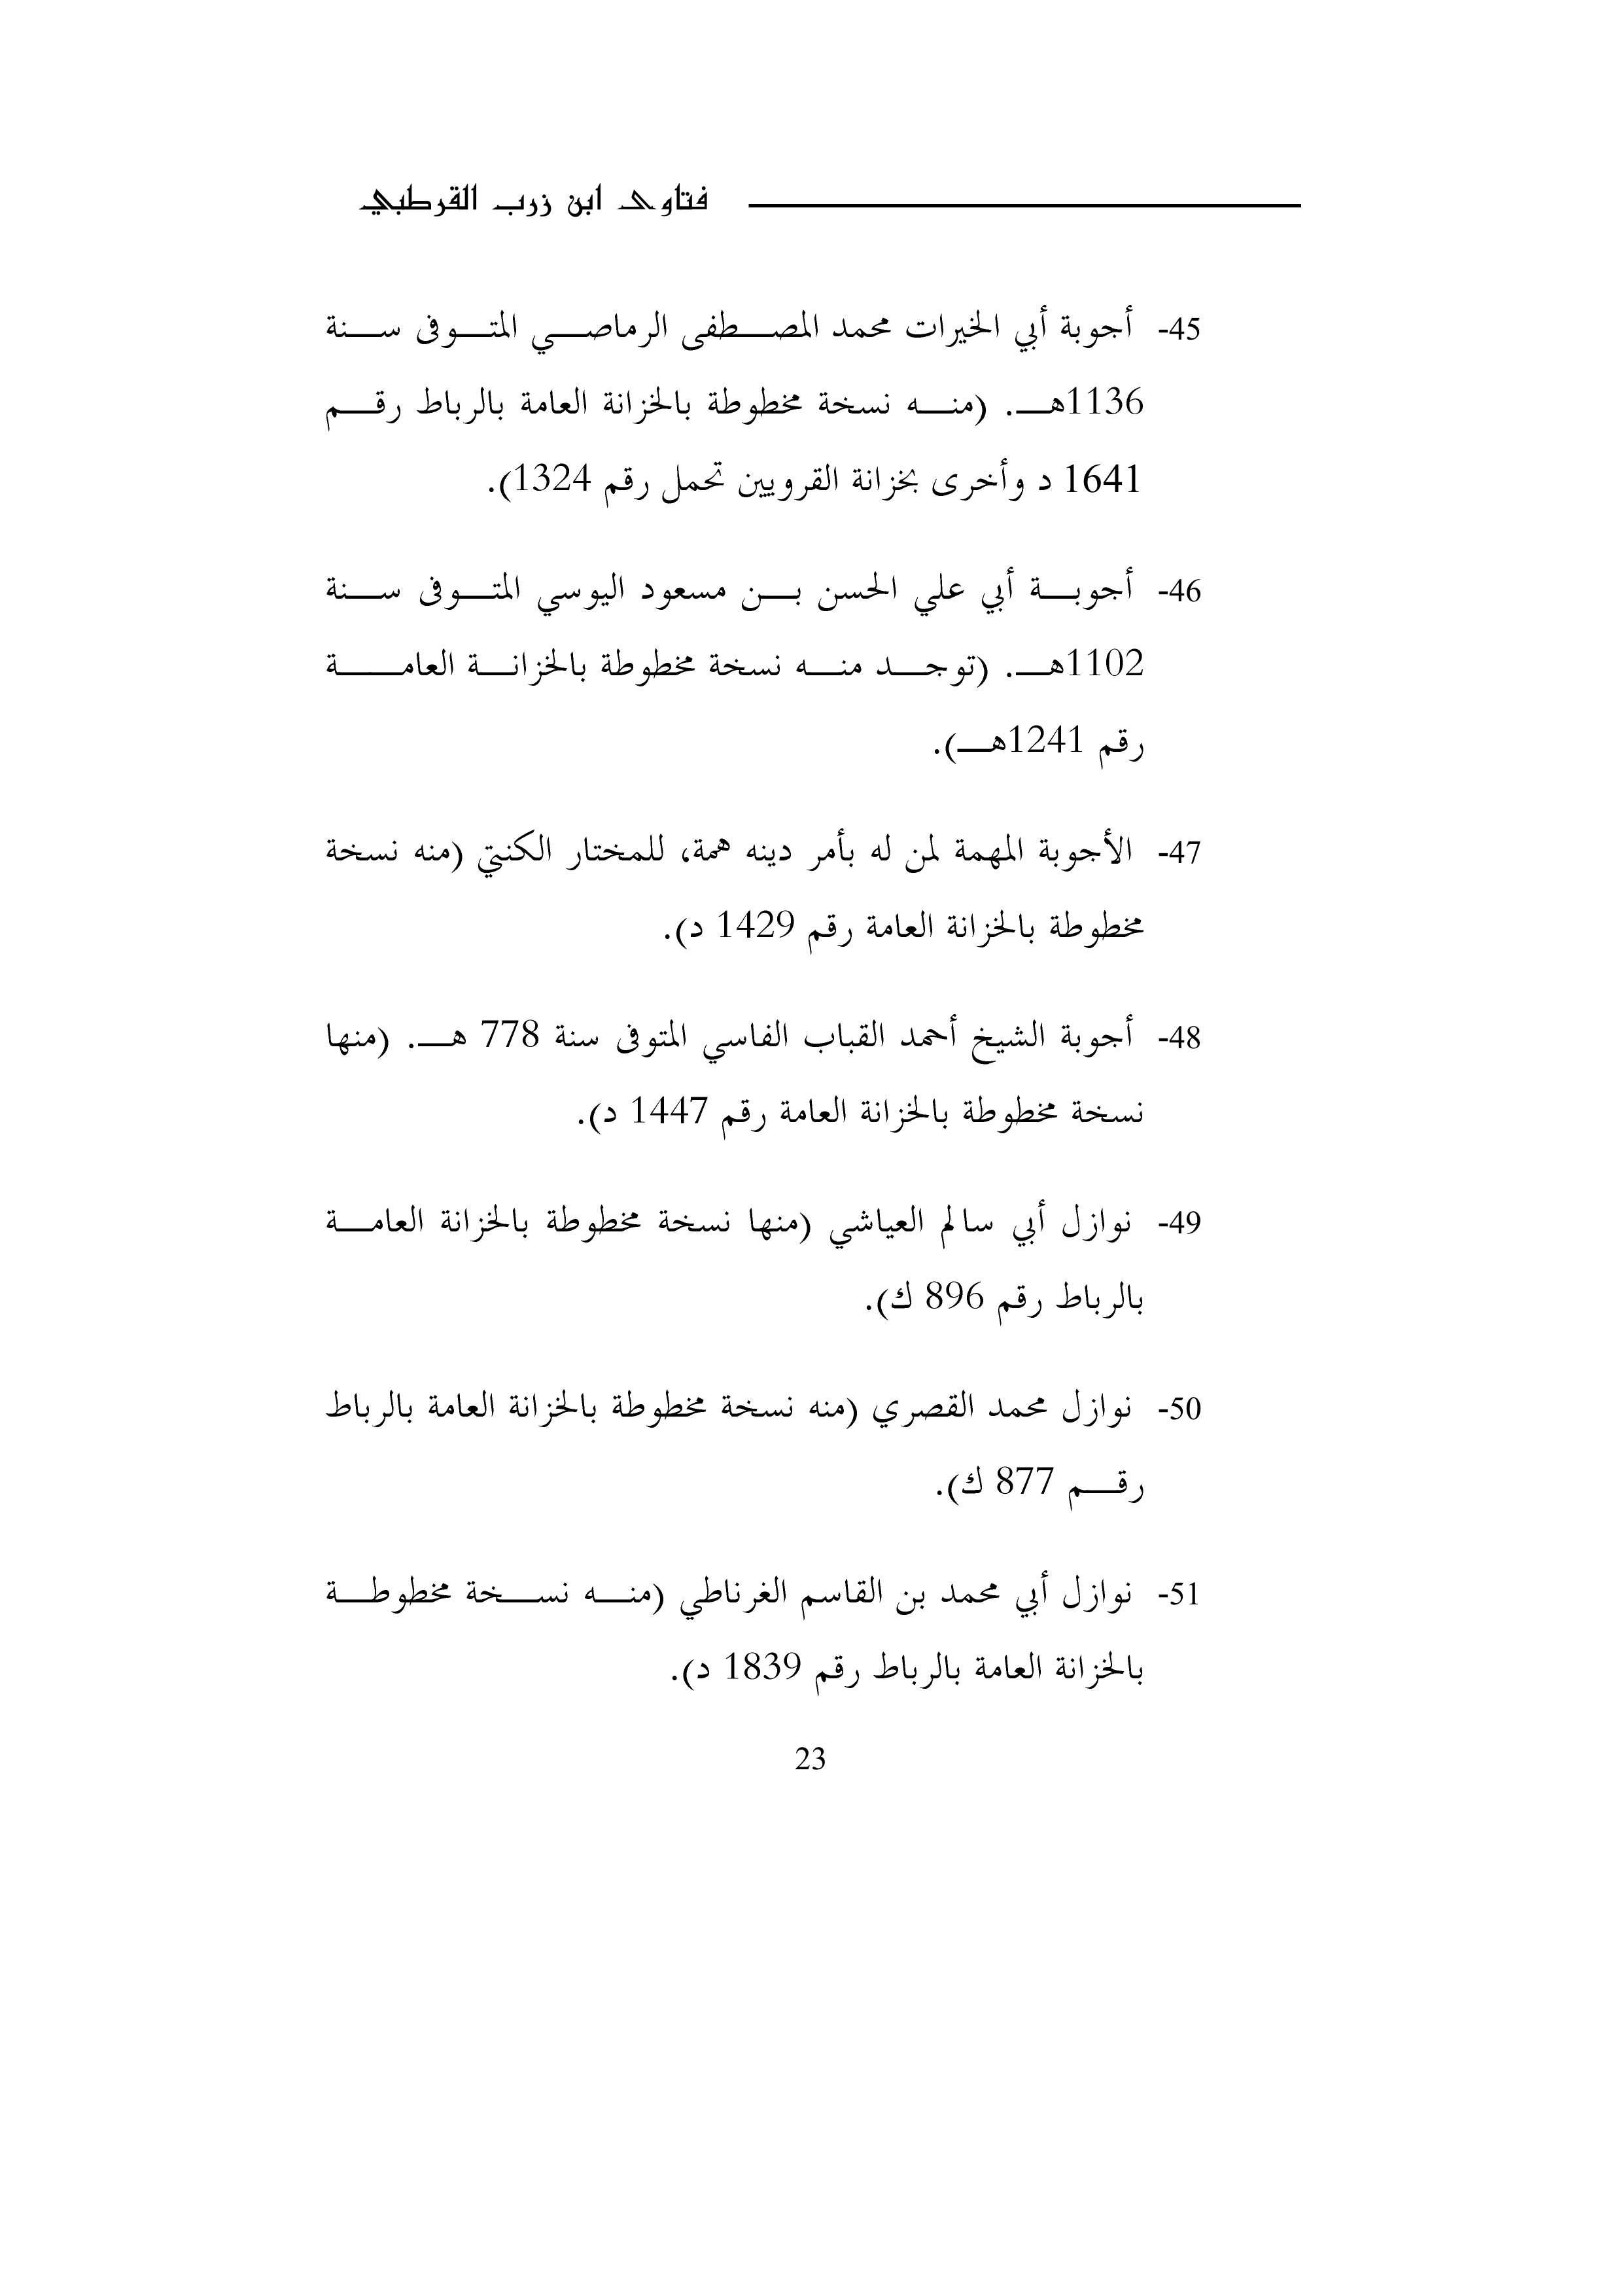 فتاوى ابن زرب القرطبي
45- أجوبة أبي الخيرات محمد المصطفى الرماصي المتوفى سنة
1136هـ. (منه نسخة مخطوطة بالخزانة العامة بالرباط رقم
1641 د وأخرى بخزانة القرويين تحمل رقم 1324).
46- أجوبة أبي علي الحسن بن مسعود اليوسي المتوفى سنة
1102هـ. (توجد منه نسخة مخطوطة بالخزانة العامة
رقم 1241هـ).
47- الأجوبة المهمة لمن له بأمر دينه همة، للمختار الكنتي (منه نسخة
مخطوطة بالخزانة العامة رقم 1429 د).
48- أجوبة الشيخ أحمد القباب الفاسي المتوفى سنة 778 هـ. (منها
نسخة مخطوطة بالخزانة العامة رقم 1447 د).
49- نوازل أبي سالم العياشي (منها نسخة مخطوطة بالخزانة العامة
بالرباط رقم 896 ك).
50- نوازل محمد القصري (منه نسخة مخطوطة بالخزانة العامة بالرباط
رقم 877 ك).
51- نوازل أبي محمد بن القاسم الغرناطي (منه نسخة مخطوطة
بالخزانة العامة بالرباط رقم 1839 د).
23